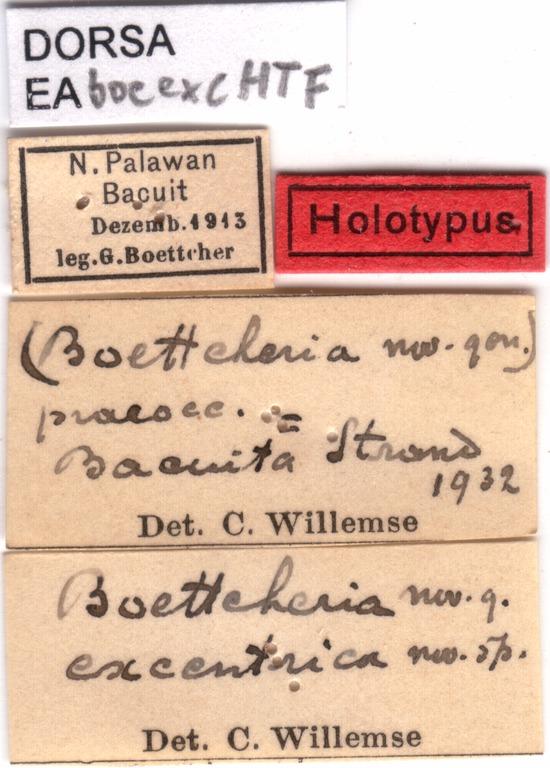 DORSA
EA bocexcHTF
N. Palawan
Bacuit
Dezemb. 1913
leg. G. Boettcher
Holotypus
(Boettcheria nov. gen.)
praeocc. =
Bacuita Strand
1932
Det. C. Willemse
Boettcheria nov. g.
excentrica nov. sp.
Det. C. Willemse